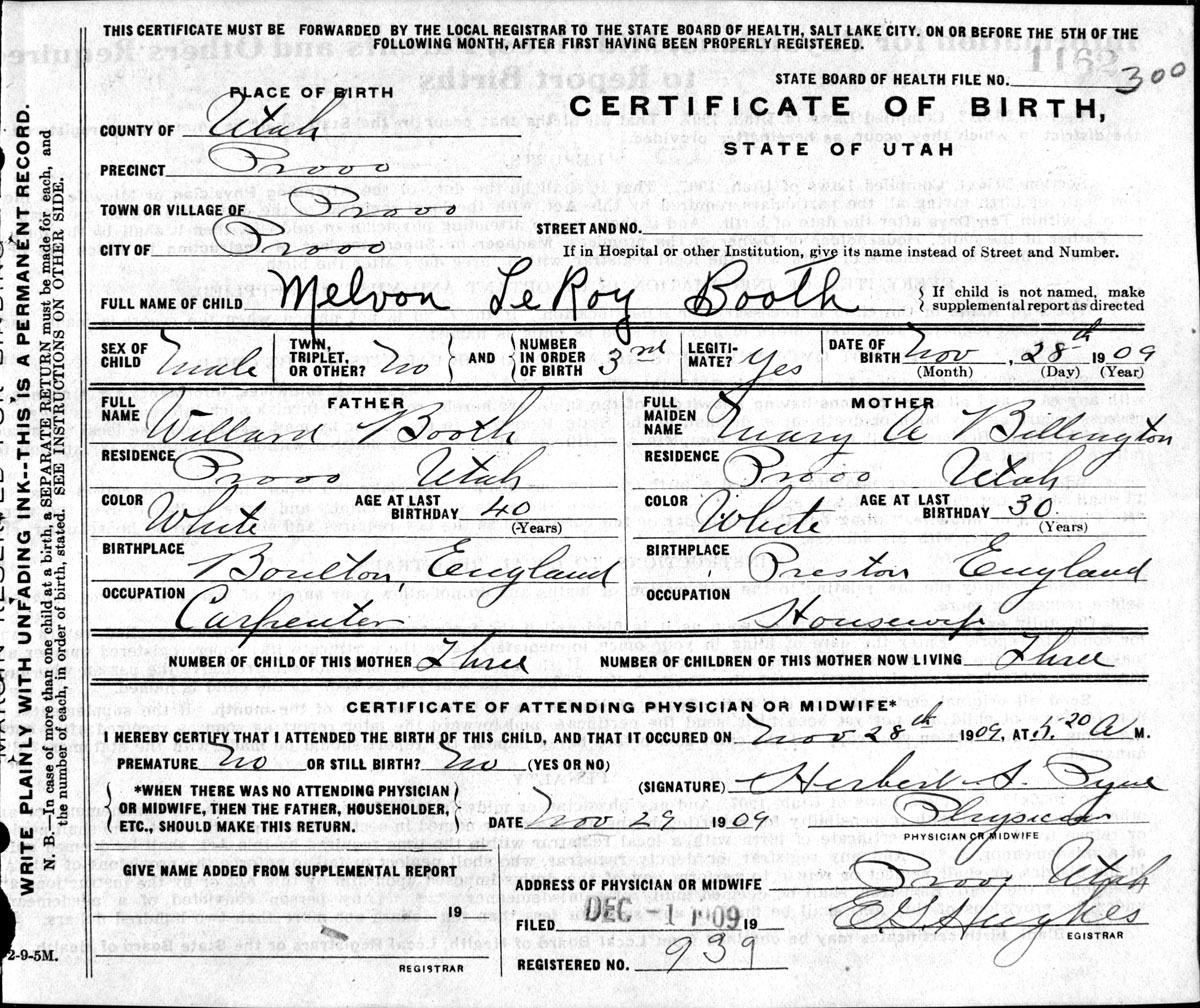 THIS CERTIFICATE MUST BE FORWARDED BY THE LOCAL REGISTRAR TO THE STATE BOARD OF HEALTH, SALT LAKE CITY. ON OR BEFORE THE 5TH OF THE
FOLLOWING MONTH, AFTER FIRST HAVING BEEN PROPERLY REGISTERED.
1162
STATE BOARD OF HEALTH FILE NO. 300
PLACE OF BIRTH
CERTIFICATE OF BIRTH,
STATE OF UTAH
COUNTY OF Utah
PRECINCT Provo
TOWN OR VILLAGE OF Provo
STREET AND NO.
CITY OF Provo
If in Hospital or other Institution, give its name instead of Street and Number.
FULL NAME OF CHILD Melvon LeRoy Booth
If child is not named, make
supplemental report as directed
SEX OF CHILD male TWIN, TRIPLET, OR OTHER? no AND NUMBER IN ORDER OF BIRTH 3rd LEGITI-MATE? yes DATE OF BIRTH Nov 28th 1909
(Month) (Day) (Year)
FATHER
FULL NAME Willard Booth
RESIDENCE Provo Utah
COLOR White AGE AT LAST BIRTHDAY 40
(Years)
BIRTHPLACE Boulton, England
OCCUPATION Carpenter
MOTHER
FULL MAIDEN NAME Mary A Billington
RESIDENCE Provo Utah
COLOR White AGE AT LAST BIRTHDAY 30
(Years)
BIRTHPLACE Preston England
OCCUPATION Housewife
NUMBER OF CHILD OF THIS MOTHER Three NUMBER OF CHILDREN OF THIS MOTHER NOW LIVING Three
CERTIFICATE OF ATTENDING PHYSICIAN OR MIDWIFE*
I HEREBY CERTIFY THAT I ATTENDED THE BIRTH OF THIS CHILD, AND THAT IT OCCURED ON Nov 28th 1909, AT A M.
PREMATURE No OR STILL BIRTH? No (YES OR NO)
(SIGNATURE) Herbert S. Pyne
*WHEN THERE WAS NO ATTENDING PHYSICIAN
OR MIDWIFE, THEN THE FATHER, HOUSEHOLDER,
ETC., SHOULD MAKE THIS RETURN.
DATE Nov 29 1909
Physician
PHYSICIAN OR MIDWIFE
GIVE NAME ADDED FROM SUPPLEMENTAL REPORT
19
REGISTRAR
ADDRESS OF PHYSICIAN OR MIDWIFE Provo Utah
FILED DEC 1 1909 19
REGISTRAR
REGISTERED NO. 939
WRITE PLAINLY WITH UNFADING INK--THIS IS A PERMANENT RECORD.
N. B.—In case of more than one child at a birth, a SEPARATE RETURN must be made for each, and
the number of each, in order of birth, stated. SEE INSTRUCTIONS ON OTHER SIDE.
2-9-5M.